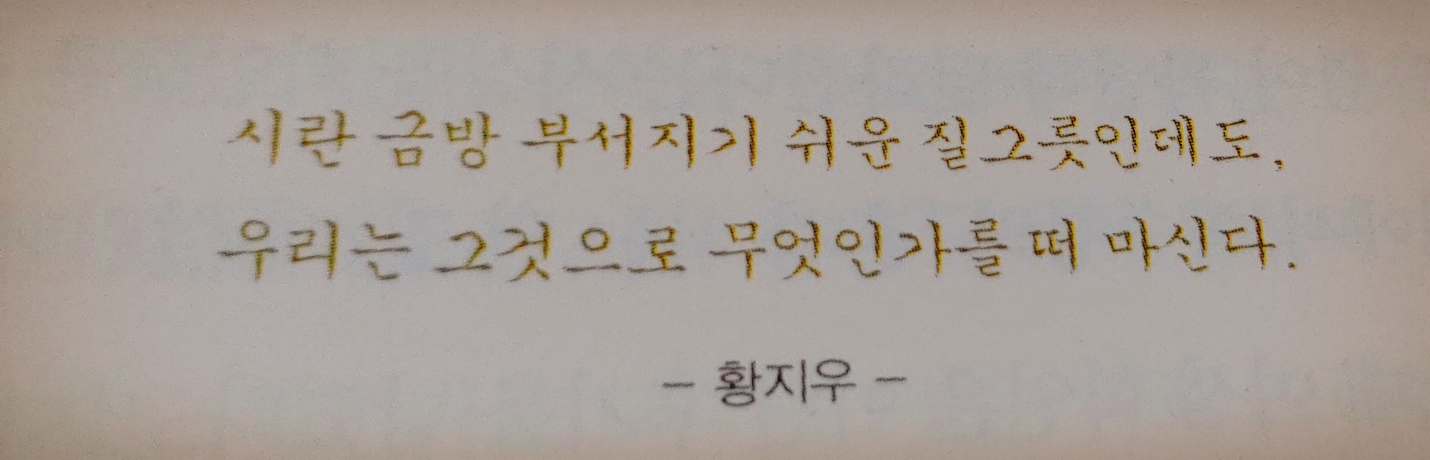 시란 금방 부서지기 쉬운 질그릇인데도,
우리는 그것으로 무엇인가를 떠 마신다.
- 황지우 -